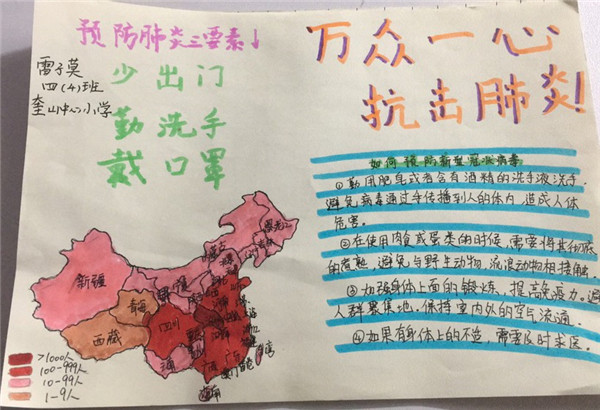 预防肺炎三要素↓
雷子莫
四(4)班
奎山中心小学
少出门
勤洗手
戴口罩
万众一心
抗击肺炎!
如何预防新型冠状病毒
①勤用肥皂或者含有酒精的洗手液洗手,
避免病毒通过手传播到人的体内,造成人体
危害。
②在使用肉食或蛋类的时候,需要将其彻底
的煮熟,避免与野生动物,流浪动物相接触。
③加强身体上面的锻炼,提高免疫力。避
人群聚集地,保持室内外的空气流通。
④如果有身体上的不适,需要及时求医。
黑龙江
吉林
新疆
青海
西藏
四川
广东
台湾
海南
>1000人
100-999人
10-99人
1-9人